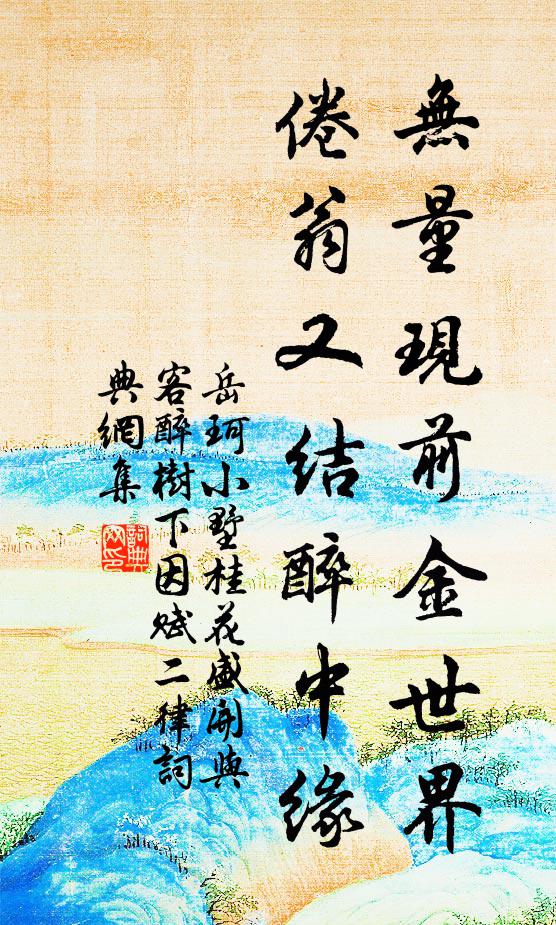 無量現前金世界
倦翁又結醉中緣
岳珂小墅桂花盛開與
客醉樹下因賦二律詞
典網集